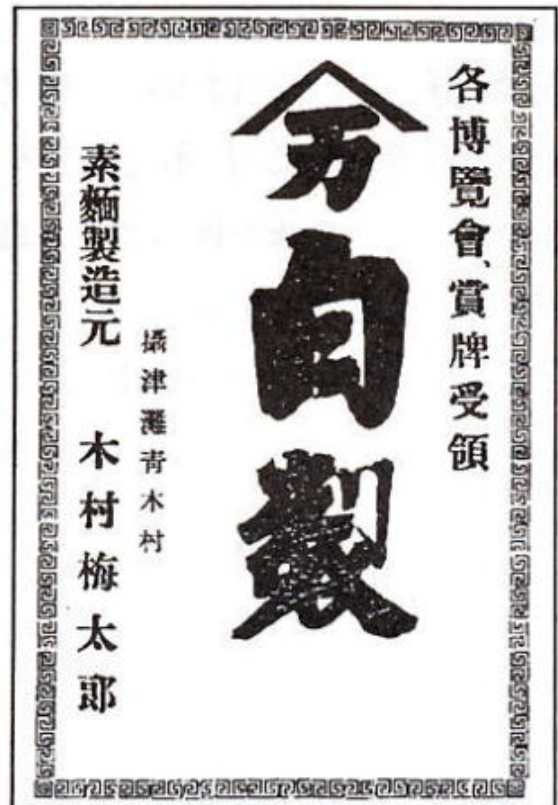 各博覽會、賞牌受領
万自製
攝津灘青木村
素麵製造元 木村梅太郎